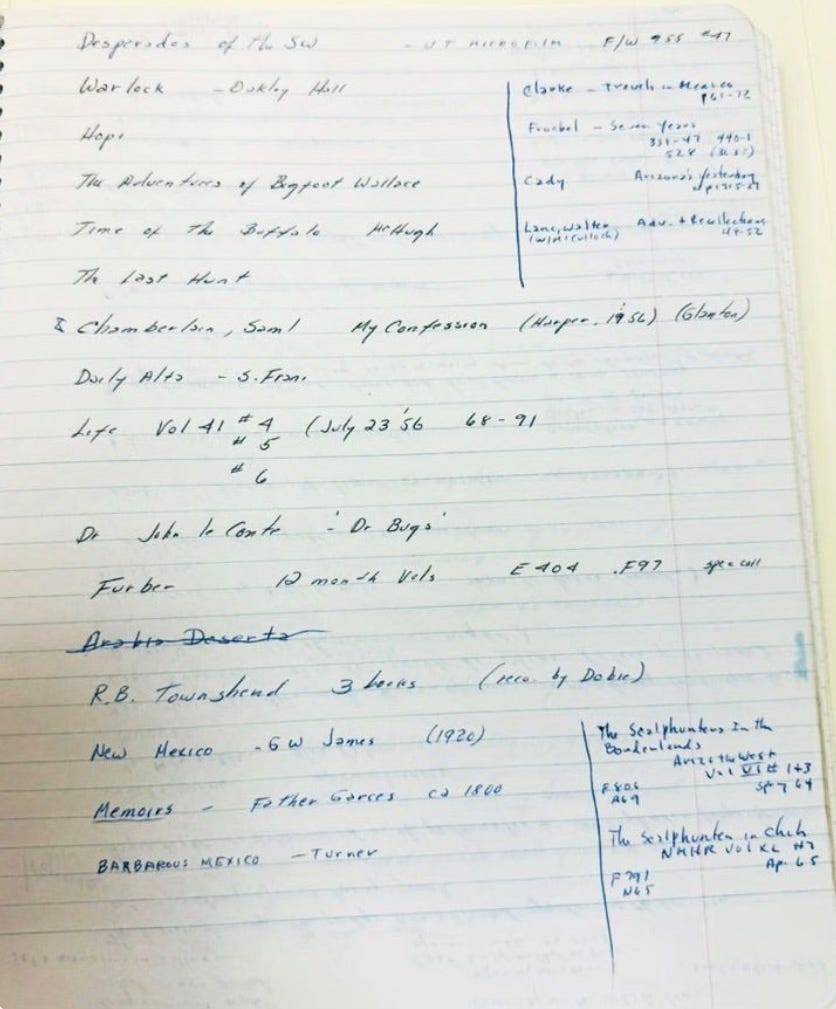 Desperados of the SW - UT MICROFILM F/W 955 #47
Warlock - Oakley Hall
Hopi
The Adventures of Bigfoot Wallace
Time of the Buffalo McHugh
The Last Hunt
Clarke - Travels in Mexico
P61-72
Froebel - Seven Years
440-1
528
Cady Arizona's Yesterday
Lane, Walter Adv. + Recollections
(W/McCulloch) 44-52
& Chamberlain, Saml My Confession (Harper, 1956) (Glanton)
Daily Alta - S. Fran.
Life Vol 41 #4 (July 23 '56 68-91
# 5
# 6
Dr John le Conte - 'Dr Bugs'
Furber 12 month Vols E404 .F97 spec coll
Arabia Deserta
R.B. Townshend 3 books (reco. by Dobie)
New Mexico - G W James (1920)
Memoirs - Father Garces ca 1800
BARBAROUS MEXICO - Turner
The Scalphunters In the
Borderlands
Ariz + the West
Vol VI # 1+3
F806
A69
The Scalphunter in Chih
NMHR Vol XL
Ap. 65
F791
N65